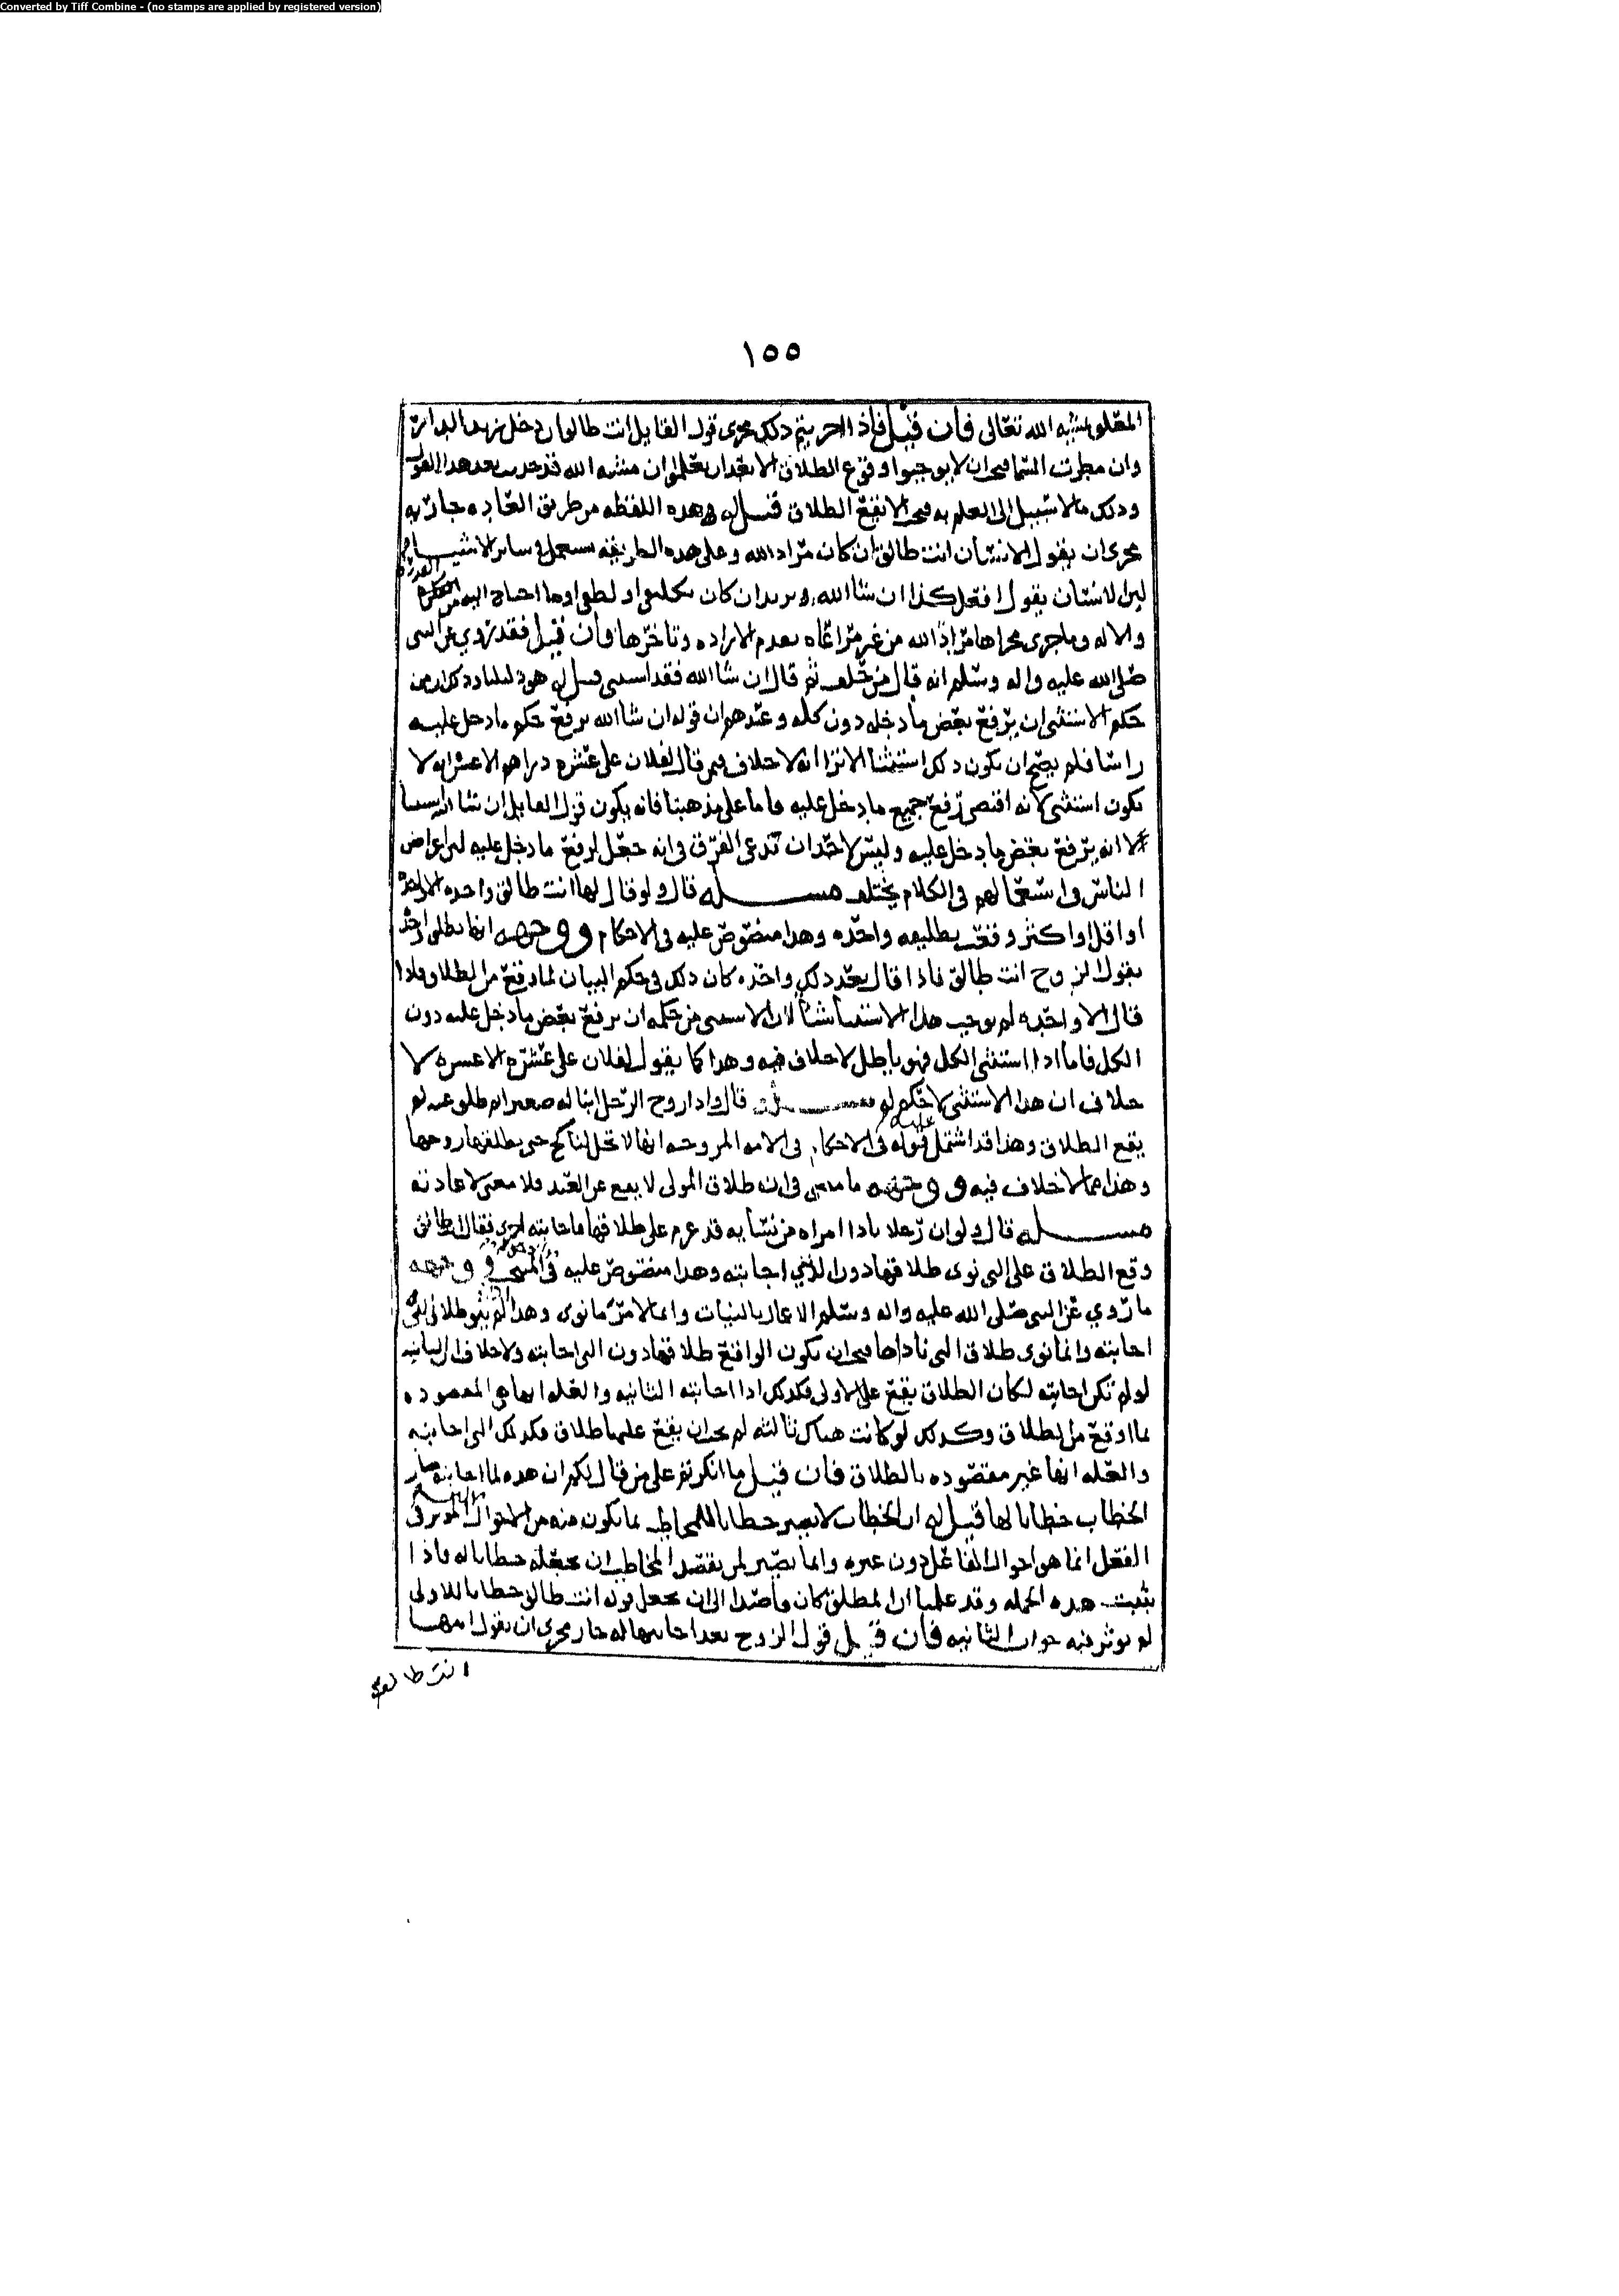 Converted by Tiff Combine - (no stamps are applied by registered version)
١٥٥
المعلق بمشيه الله تعالى فان قيل فاذا اجريتم ذلك مجرى قول القايل انت طالق ان دخل زيد الدار
وان مطرت السما فيجب ان لا يوجبوا وقوع الطلاق الا بعد ان يعلموا ان مشيه الله قد حدثت بعد هذا القول
وذلك مالا سبيل الى العلم به فيجب الا يقع الطلاق قيل له هذه اللفظه من طريق العاده جاريه
مجرى ان يقول الانسان انت طالق ان كان مراد الله وعلى هذه الطريقه يستعمل في ساير الاشيا
لان الانسان يقول افعل كذا ان شا الله ويريد ان كان او لطفوا وما احتاج اليه من
والاله وما جرى مجراها مراد الله من غير مراعاه بعدم الاراده وتاخرها فان قيل فقد روي عن النبي
صلى الله عليه واله وسلم انه قال من حلف ثم قال ان شا الله فقد استثنى قيل له هو دليلنا وذلك ان من
حكم الاستثنى ان يرفع بعض ما دخله دون كله وعندهم ان قوله ان شا الله يرفع حكم ما دخل عليه
راسا فلم يصح ان يكون ذلك استثنا الا ترا انه لا خلاف فيمن قال لفلان علي عشره دراهم الا عشره انه لا
يكون استثنى لانه اقتضى رفع جميع ما دخل عليه فاما على مذهبنا فانه يكون قول القايل ان شا الله استثنا
لانه يرفع بعض ما دخل عليه وليس لاحد ان يدعي الفرق في انه جعل لرفع ما دخل عليه لان اغراض
الناس واستعمالهم في الكلام يختلف مسله قال ولو قال لها انت طالق واحده الا واحده
او اقل او اكثر وقعت تطليقه واحده وهذا منصوص عليه في الاحكام ووجهه انها تطلق واحده
بقول الزوج انت طالق فاذا قال بعد ذلك واحده كان ذلك في حكم البيان لما وقع من الطلاق فاذا
قال الا واحده لم يوجب هذا الاستثنا شيا لان الاستثنى من حكمه ان يرفع بعض ما دخل عليه دون
الكل فاما اذا استثنى الكل فهو باطل لا خلاف فيه وهذا كما يقول لفلان علي عشره الا عشره لا
خلاف ان هذا الاستثنى لا حكم له مسله قال واذا زوج الرجل ابنا له صغيرا ثم طلق عنه لم
يقع الطلاق وهذا قد اشتمل عليه قوله في الاحكام في الامه المزوجه انها لا تحل لناكح حتى يطلقها زوجها
وهذا مما لا خلاف فيه ووجهه ما مضى في ان طلاق المولى لا يقع عن العبد فلا معنى لاعادته
مسله قال ولو ان رجلا نادا امراه من نسايه قد عزم على طلاقها فاجابته اخرى فقال انت طالق
وقع الطلاق على التي نوى طلاقها دون التي اجابته وهذا منصوص عليه في المنتخب ووجهه
ما روي عن النبي صلى الله عليه واله وسلم الاعمال بالنيات وانما لامرئ ما نوى وهذا لم ينو طلاق التي
اجابته وانما نوى طلاق التي ناداها فيجب ان يكون الواقع طلاقها دون التي اجابته ولا خلاف ان الثانيه
لو لم تكن اجابته لكان الطلاق يقع على الاولى فكذلك اذا اجابته الثانيه والعله انها هي المقصوده
بما اوقع من الطلاق وكذلك لو كانت هناك ثالثه لم يجب ان يقع عليها طلاق فكذلك التي اجابته
والعله انها غير مقصوده بالطلاق فان قيل ما انكرتم على من قال لكم ان هذه لما اجابته صار
الخطاب خطابا لها قيل له ان الخطاب لا يصير خطابا للمخاطب بما يكون منه من الاحوال المؤثر في
الفعل انما هو احوال الفاعل دون غيره وانما يصير لمن يقصد المخاطب ان يجعله خطابا له فاذا
ثبتت هذه الجمله وقد علمنا ان المطلق كان قاصدا الى ان يجعل قوله انت طالق خطابا للاولى
لم يوثر فيه جواب الثانيه فان قيل قول الزوج بعد اجابتها له جار مجرى ان يقول لها
انت طالق